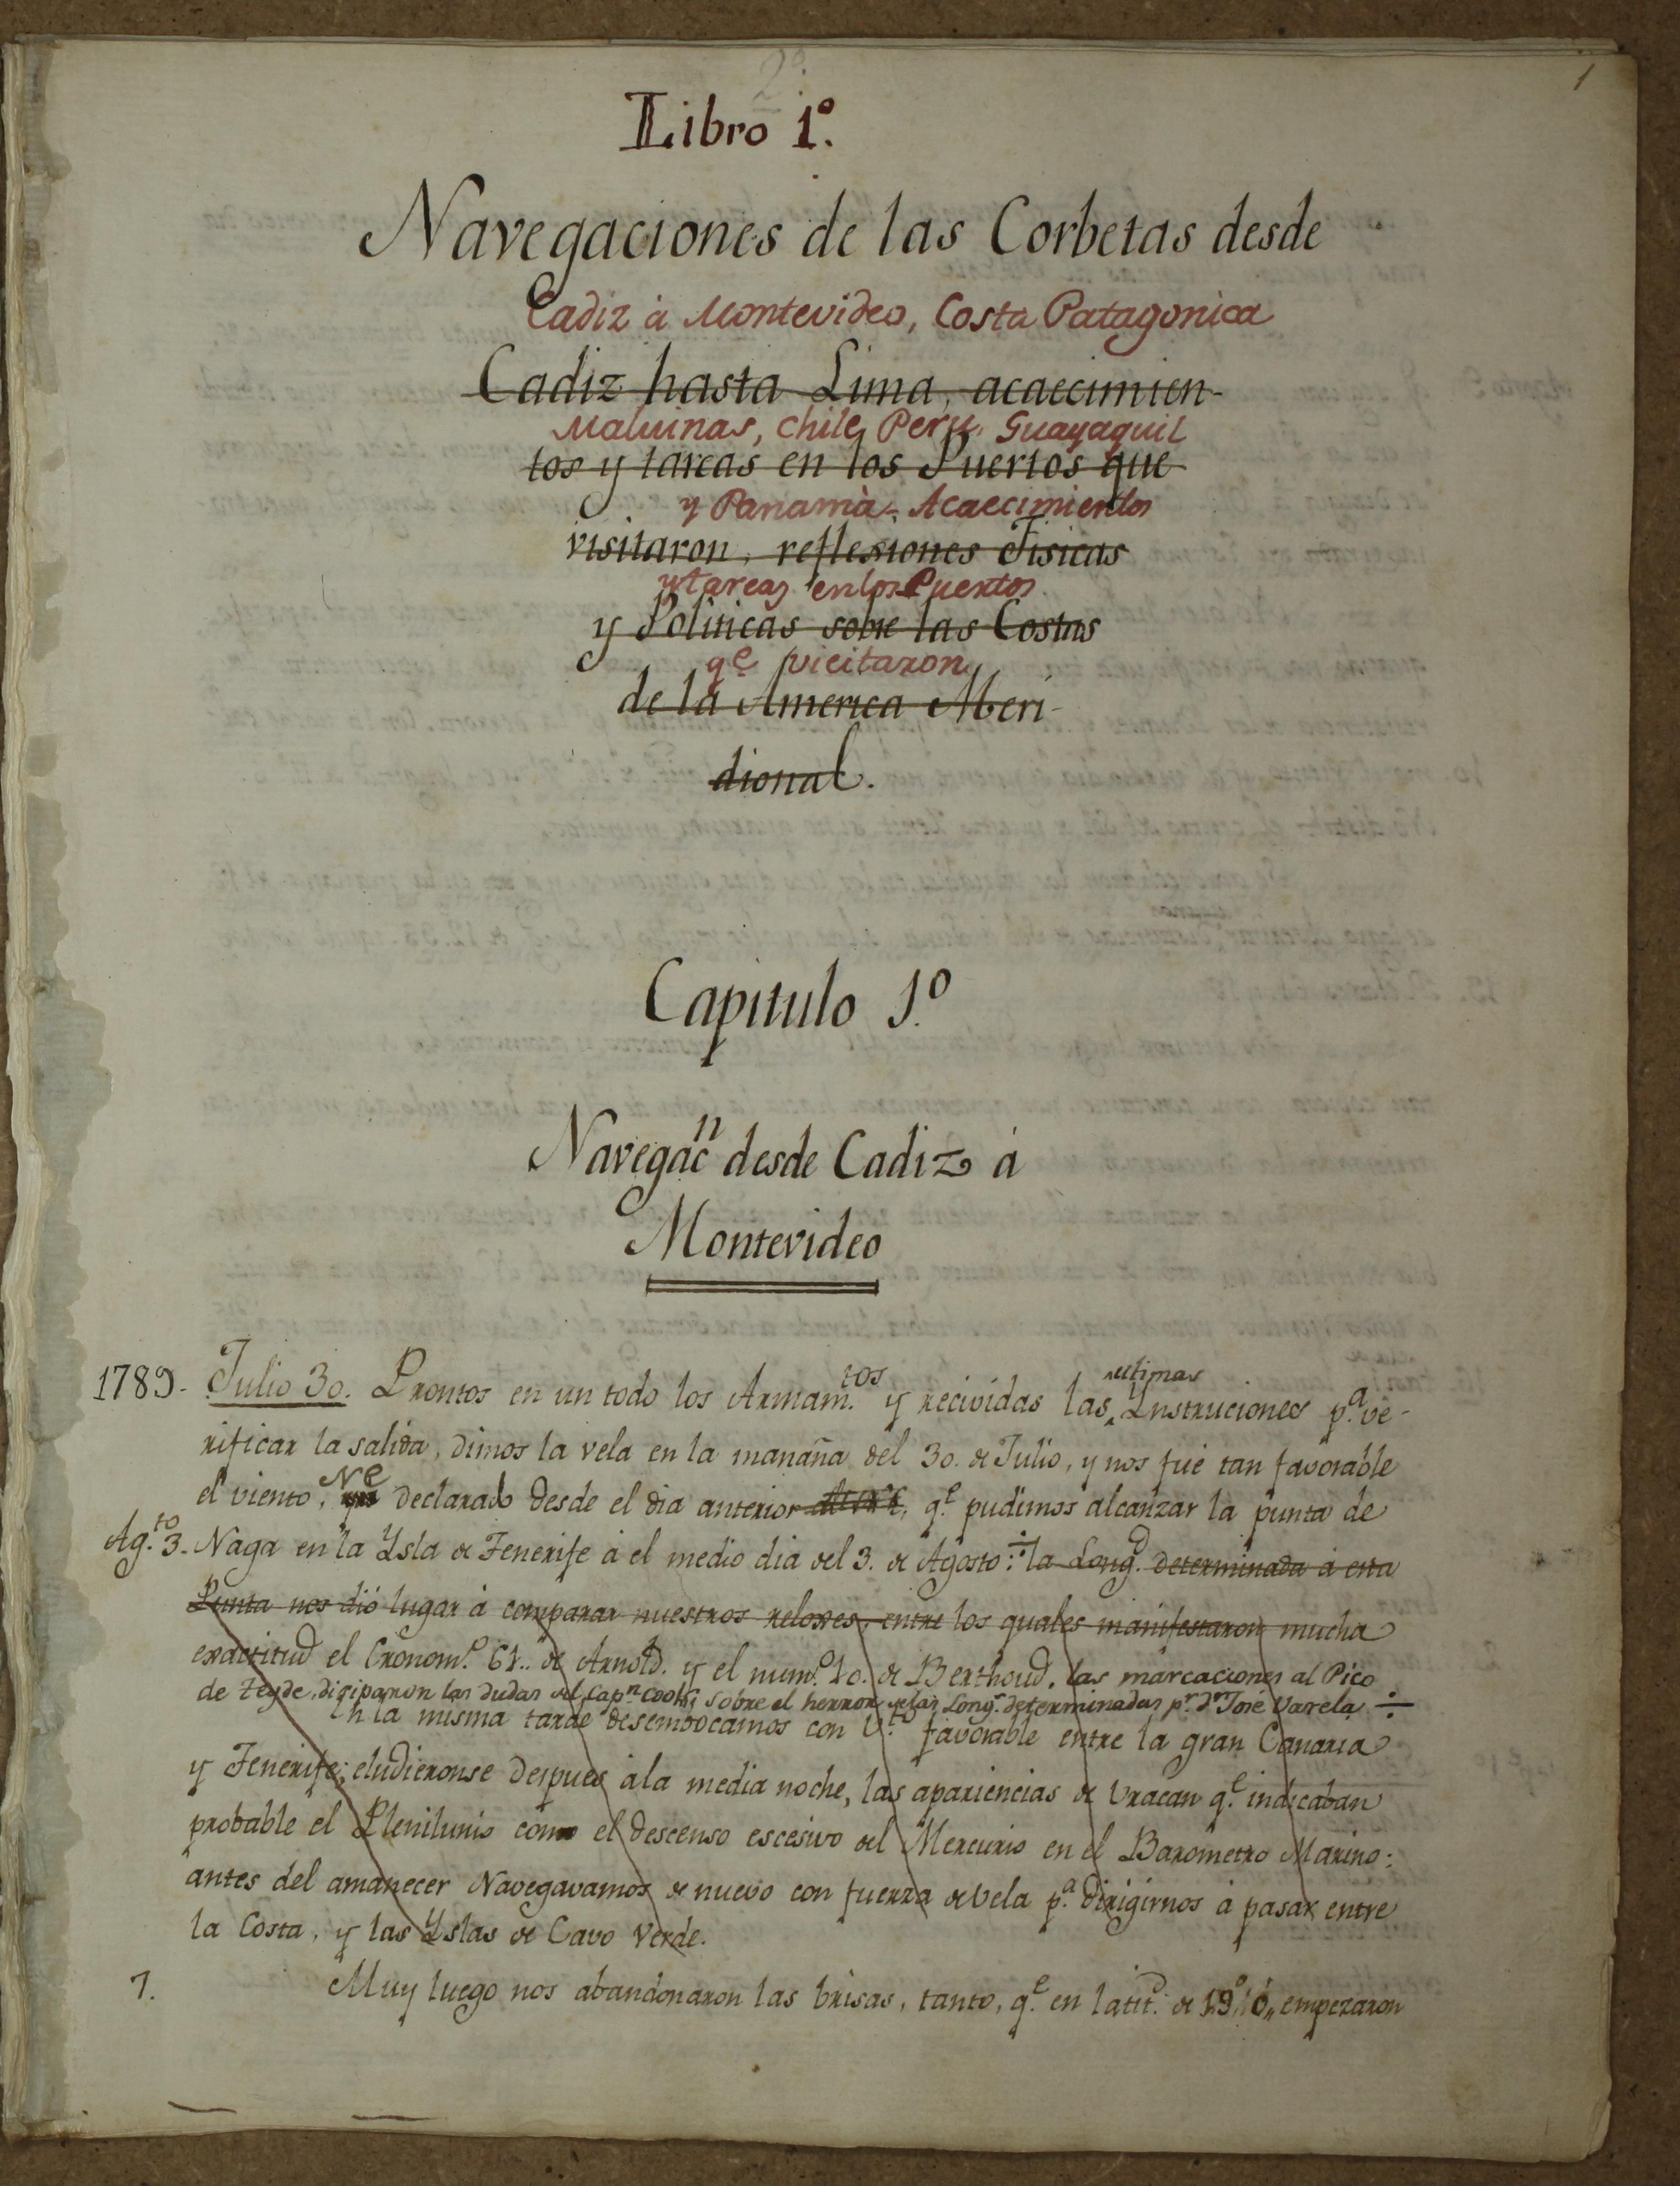 1
2º
Libro 1º.
Navegaciones de las Corbetas desde
Cadiz à Montevideo, Costa Patagonica
Cadiz hasta Lima, acaecimien-
Malvinas, Chile, Peru, Guayaquil
tos y tareas en los Puertos que
y Panamà. Acaecimientos
visitaron, reflexiones Fisicas
y tareas en los Puertos
y Politicas sobre las Costas
q.e vicitaron
de la America Meri-
dional.
Capitulo 1º
Navegac.n desde Cadiz á
Montevideo
1789. Julio 30. Prontos en un todo los Armam.tos y recividas las ultimas Ynstruciones p.a ve-
rificar la salida, dimos la vela en la manaña del 30. de Julio, y nos fué tan favorable
el viento, Ne declarado desde el dia anterior q.e pudimos alcanzar la punta de
Ag.to 3. Naga en la Ysla de Tenerife á el medio dia del 3. de Agosto: la Long.d determinada á esta
Punta nos dió lugar á comparar nuestros reloxes, entre los quales manifestaron mucha
exactitud el Cronom.o 61.. de Arnold. y el num.o 10. de Berthoud. las marcaciones al Pico
de Teyde, disiparon las dudas del Cap.n Cook sobre el herror de las Long.s determinadas p.r d.n Jose Varela
En la misma tarde desembocamos con V.to favorable entre la gran Canaria
y Tenerife; eludieronse despues ala media noche, las apariencias de Uracan q.e indicaban
probable el Plenilunio como el descenso escesivo del Mercurio en el Barometro Marino:
antes del amanecer Navegavamos de nuevo con fuerza de Vela p.a dirigirnos á pasar entre
la Costa, y las Yslas de Cavo Verde.
7. Muy luego nos abandonaron las brisas, tanto, q.e en latit.d de 19º empezaron